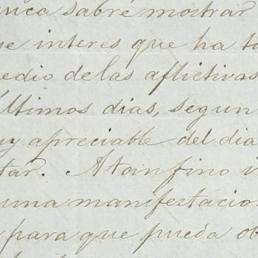 unca sabré mostrar
ue interes que ha to
edio de las aflictivas
últimos dias, segun
uy apreciable del dia
tar. A tan fino
una manifestacio
para que pueda ob